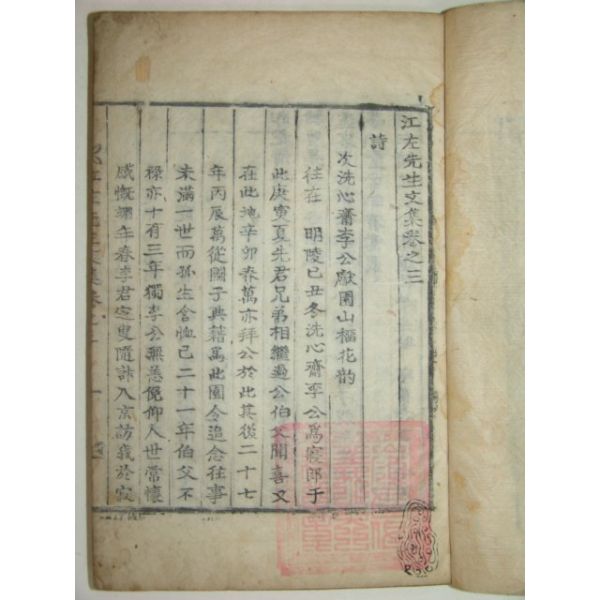 江左先生文集卷之三
詩
次洗心齋李公獻園山榴花韵
往在 明陵己丑冬洗心齋李公爲寢郎于
此庚寅夏先君兄弟相繼過公伯父聞喜又
在此地辛卯春萬亦拜公於此其後二十七
年丙辰萬從園子典籍爲此園令追念往事
未滿一世而孤生含恤已二十一年伯父不
祿亦十有三年獨李公無恙俛仰人世常懷
感慨翊年春李君 叟隨計入京訪我於寂